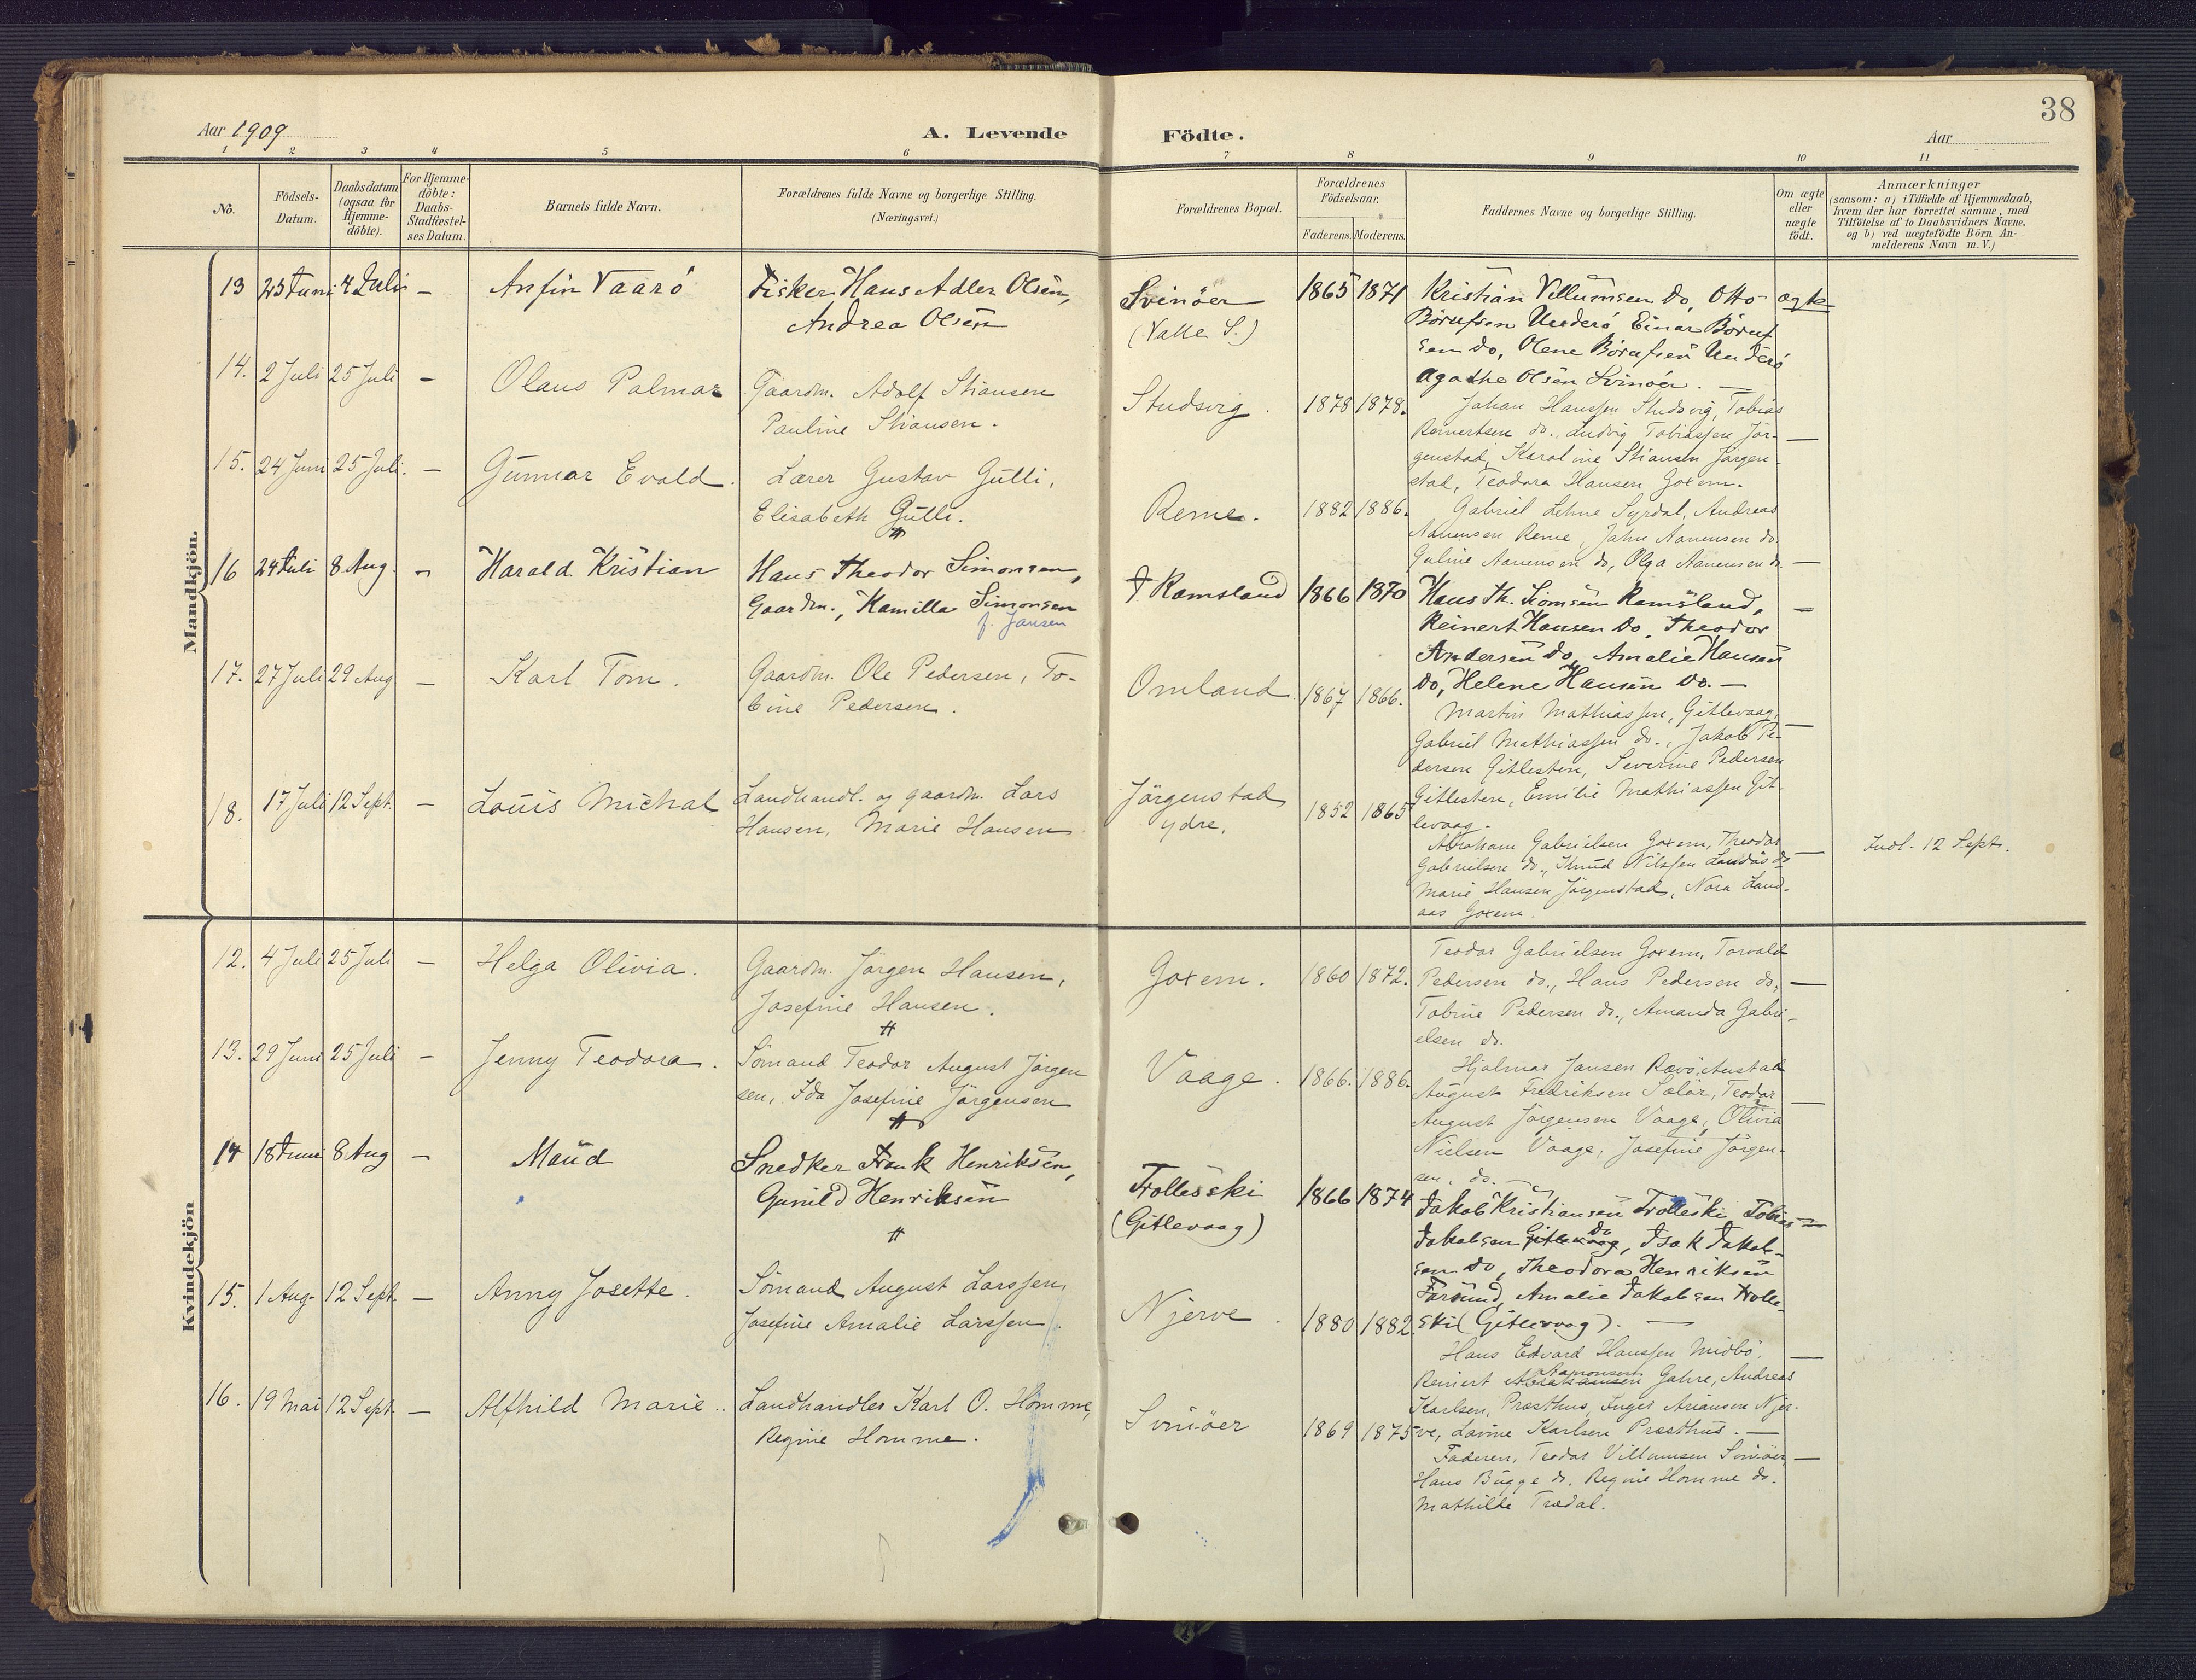 38
Aar 1909
A. Levende Födte.
Aar
1 2 3 4 5 6 7 8 9 10 11
No.
Födsels-
Datum.
Daabsdatum
(ogsaa for
Hjemme-
döbte).
For Hjemme-
döbte:
Daabs-
Stadfæstel-
ses Datum.
Barnets fulde Navn.
Forældrenes fulde Navne og borgerlige Stilling.
(Næringsvei.)
Forældrenes Bopæl.
Forældrenes
Födselsaar.
Faderens. Moderens.
Faddernes Navne og borgerlige Stilling.
Om ægte
eller
uægte
födt.
Anmærkninger
(saasom: a) i Tilfælde af Hjemmedaab,
hvem der har forrettet samme, med
Tilföielse af to Daabsvidners Navne,
og b) ved uægtefödte Börn An-
melderens Navn m. V.)
Mandkjön.
13 23 Juni 4 Juli – Anfin Vaarö
Fisker Hans Adler Olsen,
Andrea Olsen
Svinöer
(Valle S.)
1865 1871
Kristian Villumsen do, Otto
Börufsen Underö, Einar Böruf
sen do, Olene Börufsen Underö
Agathe Olsen Svinöer. –
ægte
14. 2 Juli 25 Juli – Olaus Palmar
Gaardm. Adolf Stiansen
Pauline Stiansen.
Studsvig.
1878 1878.
Johan Hanssen Studsvig, Tobias
Reinertsen do., Ludvig Tobiassen Jör-
genstad, Karoline Stiansen Jörgen-
stad, Teodora Hansen Goxem.
–
15. 24 Juni 25 Juli. – Gunnar Evald.
Lærer Gustav Gulli,
Elisabeth Gulli.
Reme.
1882 1886.
Gabriel Lehne Syrdal, Andreas
Aanensen Reme, Jahn Aanensen do.
Guline Aanensen do, Olga Aanensen do.
–
16 24 Juli 8 Aug. – Harald Kristian
Hans Theodor Simonsen,
Gaardm., Kamilla Simonsen
f. Jansen
Ramsland
1866 1870
Hans Th. Simonsen Ramsland,
Reinert Hansen do, Theodor
Andersen do, Amalie Hansen
do, Helene Hansen do. –
–
17. 27 Juli 29 Aug – Karl Tom.
Gaardm. Ole Pedersen, To-
bine Pedersen.
Omland.
1867 1866.
Martin Mathiassen, Gitlevaag,
Gabriel Mathiassen do., Jakob Pe-
dersen Gitlesten, Severine Pedersen
Gitlesten, Emilie Mathiassen Git-
levaag.
–
18. 17 Juli 12 Sept. – Louis Michal
Landhandl. og gaardm. Lars
Hansen, Marie Hansen
Jörgenstad
ydre.
1852 1865
Abraham Gabrielsen Goxem, Theodor
Gabrielsen do., Knud Nilssen Landaas do
Marie Hansen Jörgenstad, Nora Land-
aas Goxem.
–
Indl. 12 Sept.
Kvindekjön
12. 4 Juli 25 Juli – Helga Olivia.
Gaardm. Jörgen Hansen,
Josefine Hansen.
Goxem.
1860 1872.
Teodor Gabrielsen Goxem, Torvald
Pedersen do., Hans Pedersen do,
Tobine Pedersen do., Amanda Gabri-
elsen do.
–
13. 29 Juni 25 Juli – Jenny Teodora.
Sömand Teodor August Jörgen
sen, Ida Josefine Jörgensen
Vaage.
1866. 1886.
Hjalmar Jansen Rævö, Austad
August Fredriksen Salör, Teodor
August Jörgensen Vaage, Olivia
Nielsen Vaage, Josefine Jörgen-
sen, do. –
–
14 18 Juni 8 Aug – Maud
Snedker Frank Henriksen,
Gunild Henriksen
Trollesski
(Gitlevaag)
1866 1874
Jakob Kristiansen Trolleski Tobias
Jakobsen do, Isak Jakob-
sen do, Theodora Henriksen
Farsund, Amalie Jakobsen Trolle-
ski (Gitlevaag). –
15. 1 Aug. 12 Sept. – Anny Josette.
Sömand August Larssen,
Josefine Amalie Larssen.
Njerve.
1880 1882
Hans Edvard Hanssen Midbö,
Reinert Aamonsen Gahre, Andreas
Karlsen, Præsthus, Inger Ariansen Njer-
ve, Lavine Karlsen Præsthus. –
–
16. 19 Mai 12 Sept. – Alfhild Marie..
Landhandler Karl O. Homme,
Regine Homme.
Svinöer
1869 1875
Faderen, Teodor Villumsen Svinöer,
Hans Bugge do. Regine Homme do.
Mathilde Trædal.
–